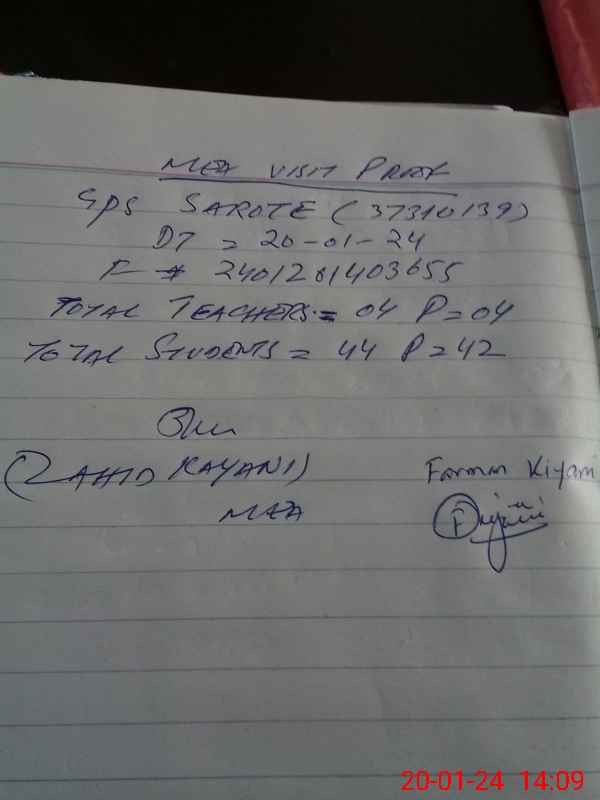 MEA VISIT PROOF
GPS SAROTE (37310139)
DT = 20-01-24
F # 2401201403655
TOTAL TEACHERS = 04 P=04
TOTAL STUDENTS = 44 P=42
(ZAHID KAYANI)
MEA
Kiyani
20-01-24 14:09